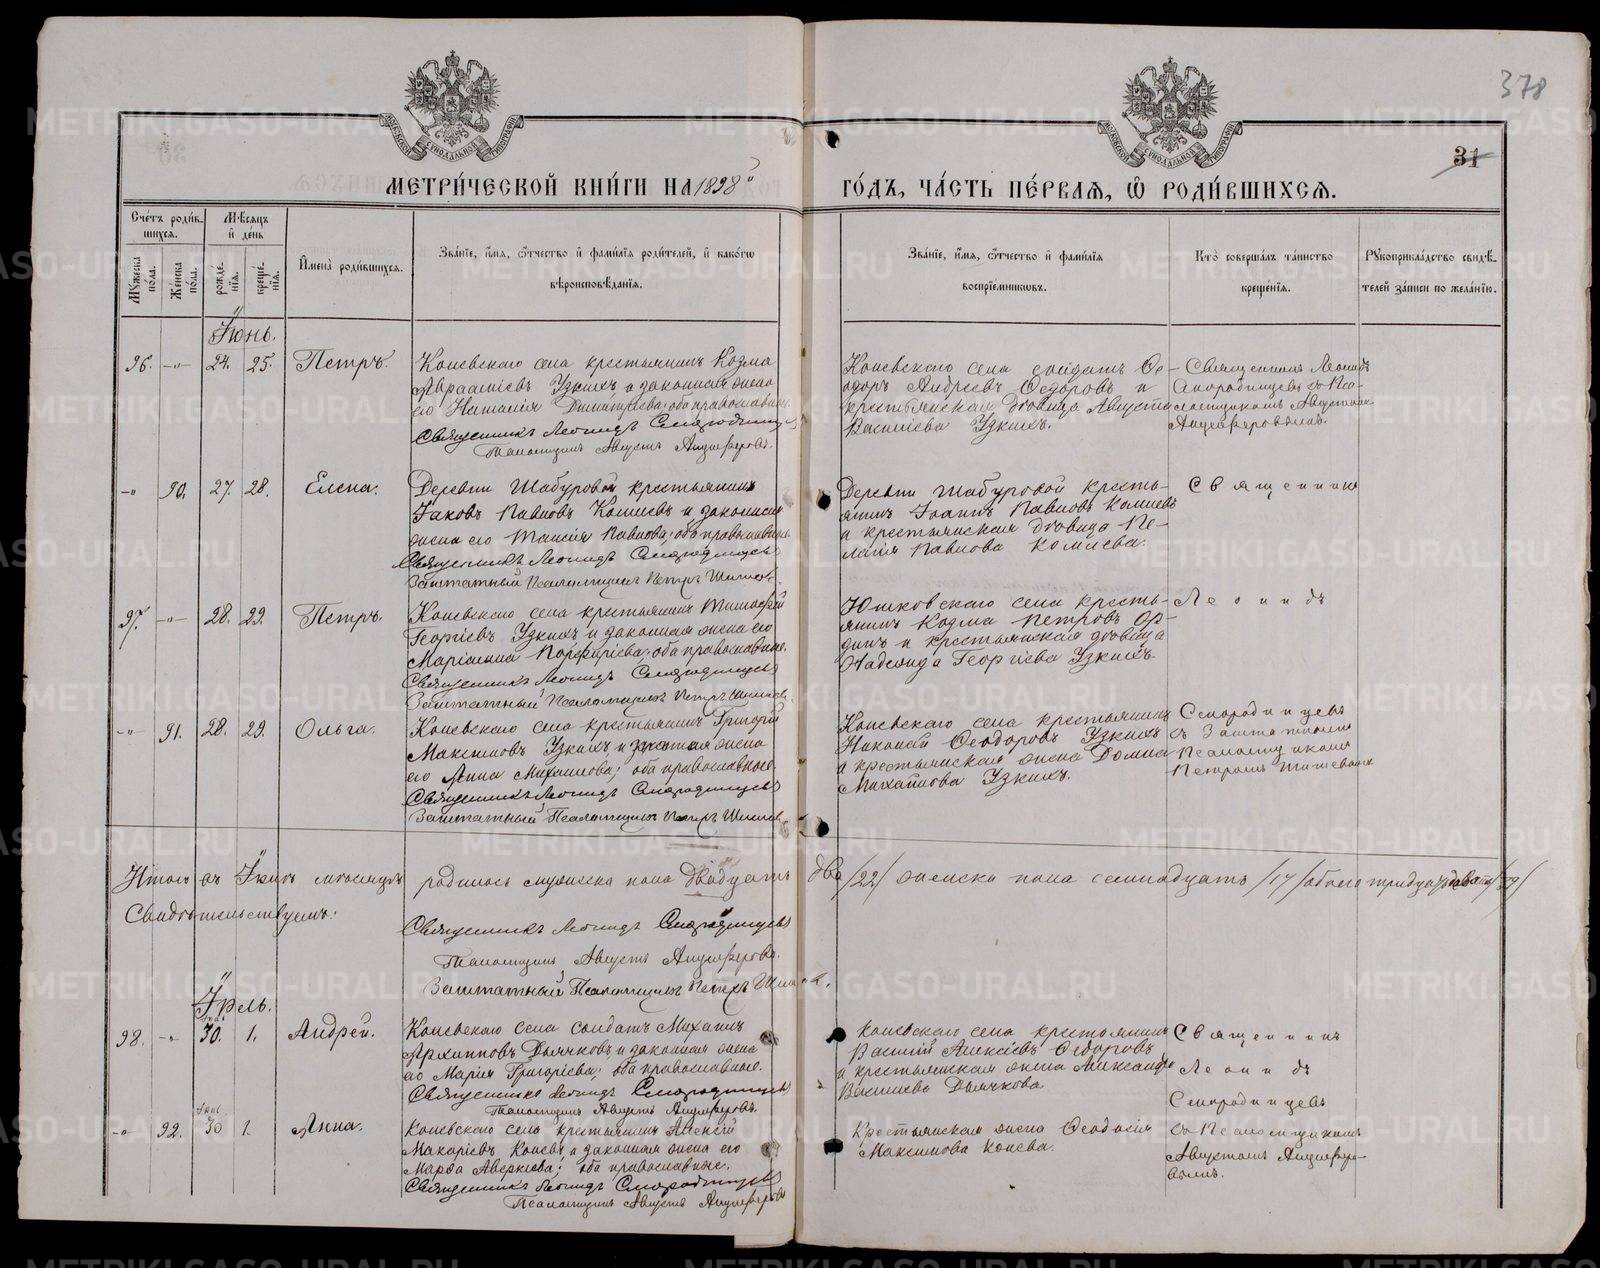 378
31
МОСКОВСКОЙ СѴНОДАЛЬНОЙ ТИПОГРАФИИ
МОСКОВСКОЙ СѴНОДАЛЬНОЙ ТИПОГРАФИИ
МЕТРИ́ЧЕСКОЙ КНИ́ГИ НА 1898й
ГО́ДЪ, ЧА́СТЬ ПЕ́РВАЯ, Ѡ РОДИ́ВШИХСѦ.
Сче́тъ роди́вшихсѧ.
Мꙋ́жеска по́ла.
Же́нска по́ла.
Мѣ́сѧцъ и҆ де́нь
рожде́нїѧ.
креще́нїѧ.
И҆мена̀ роди́вшихсѧ.
Зва́нїе, и҆́мѧ, ѻ҆́тчество и҆ фами́лїѧ роди́телей, и҆ како́гѡ
вѣроисповѣ́данїѧ.
Зва́нїе, и҆́мѧ, ѻ҆́тчество и҆ фами́лїѧ
воспрїе́мникѡвъ.
Кто̀ соверша́лъ та́инство
креще́нїѧ.
Рꙋкоприкла́дство свидѣ́телей за́писи по жела́нїю.
Іюнь.
96. -"- 24. 25. Петръ.
Коневскаго села крестьянинъ Козма
Авраамiевъ Узкихъ и законная жена
его Наталiя Димитрiева; оба православные.
Священникъ Леонидъ Смородинцевъ
Псаломщикъ Августъ Анциферовъ.
Коневскаго села солдатъ Ѳе-
одоръ Андреевъ Ѳедоровъ и
крестьянская дѣвица Августа
Васильева Узкихъ.
Священникъ Леонидъ
Смородинцевъ съ Пса-
ломщикомъ Августомъ
Анциферовымъ.
-"- 90. 27. 28. Елена.
Деревни Шабуровой крестьянинъ
Iаковъ Павловъ Комлевъ и законная
жена его Таисiя Павлова; оба православные.
Священникъ Леонидъ Смородинцевъ
Заштатный Псаломщикъ Петръ
Деревни Шабуровой кресть-
янинъ Iоаннъ Павловъ Комлевъ
и крестьянская дѣвица Пе-
лагiя Павлова Комлева.
Священникъ
97. -"- 28. 29. Петръ.
Коневскаго села крестьянинъ Тимофей
Георгiевъ Узкихъ и законная жена его
Марiамна Порфирiева; оба православные.
Священникъ Леонидъ Смородинцевъ
Заштатный Псаломщикъ Петръ
Юшковскаго села кресть-
янинъ Козма Петровъ Ор-
динъ и крестьянская дѣвица
Надежда Георгiева Узкихъ.
Леонидъ
-"- 91. 28. 29. Ольга.
Коневскаго села крестьянинъ Григорiй
Максимовъ Узкихъ и законная жена
его Анна Михаилова; оба православные.
Священникъ Леонидъ Смородинцевъ
Заштатный Псаломщикъ Петръ
Коневскаго села крестьянинъ
Ѳеодоровъ Узкихъ
и крестьянская жена Домна
Михайлова Узкихъ.
Смородинцевъ
съ Заштатнымъ
Псаломщикомъ
Петромъ
Итого въ Iюнѣ мѣсяцѣ родилось мужеска пола двадцать два /22/ женска пола семнадцать /17/ обоего тридцать девять /39/
Свидѣтельствуемъ:
Священникъ Леонидъ Смородинцевъ
Псаломщикъ Августъ Анциферовъ.
Заштатный Псаломщикъ Петръ
Iюль.
98. -"- 30. 1. Андрей.
Коневскаго села солдатъ Михаилъ
Архипповъ Дьячковъ и законная жена
его Марiя Григорiева; оба православные.
Священникъ Леонидъ Смородинцевъ
Псаломщикъ Августъ Анциферовъ.
Коневскаго села крестьянинъ
Василiй Алексѣевъ Ѳедоровъ
и крестьянская жена Александра
Васильева Дьячкова
Священникъ
Леонидъ
Смородинцевъ
-"- 92. 30 1. Анна.
Коневскаго села крестьянинъ Алексiй
Макарiевъ Коневъ и законная жена его
Марѳа Аверкiева; оба православные.
Священникъ Леонидъ Смородинцевъ
Псаломщикъ Августъ Анциферовъ
Крестьянская жена Ѳеодосiя
Максимова Конева.
съ Псаломщикомъ
Августомъ Анцифе-
ровымъ.
METRIKI.GASO-URAL.RU